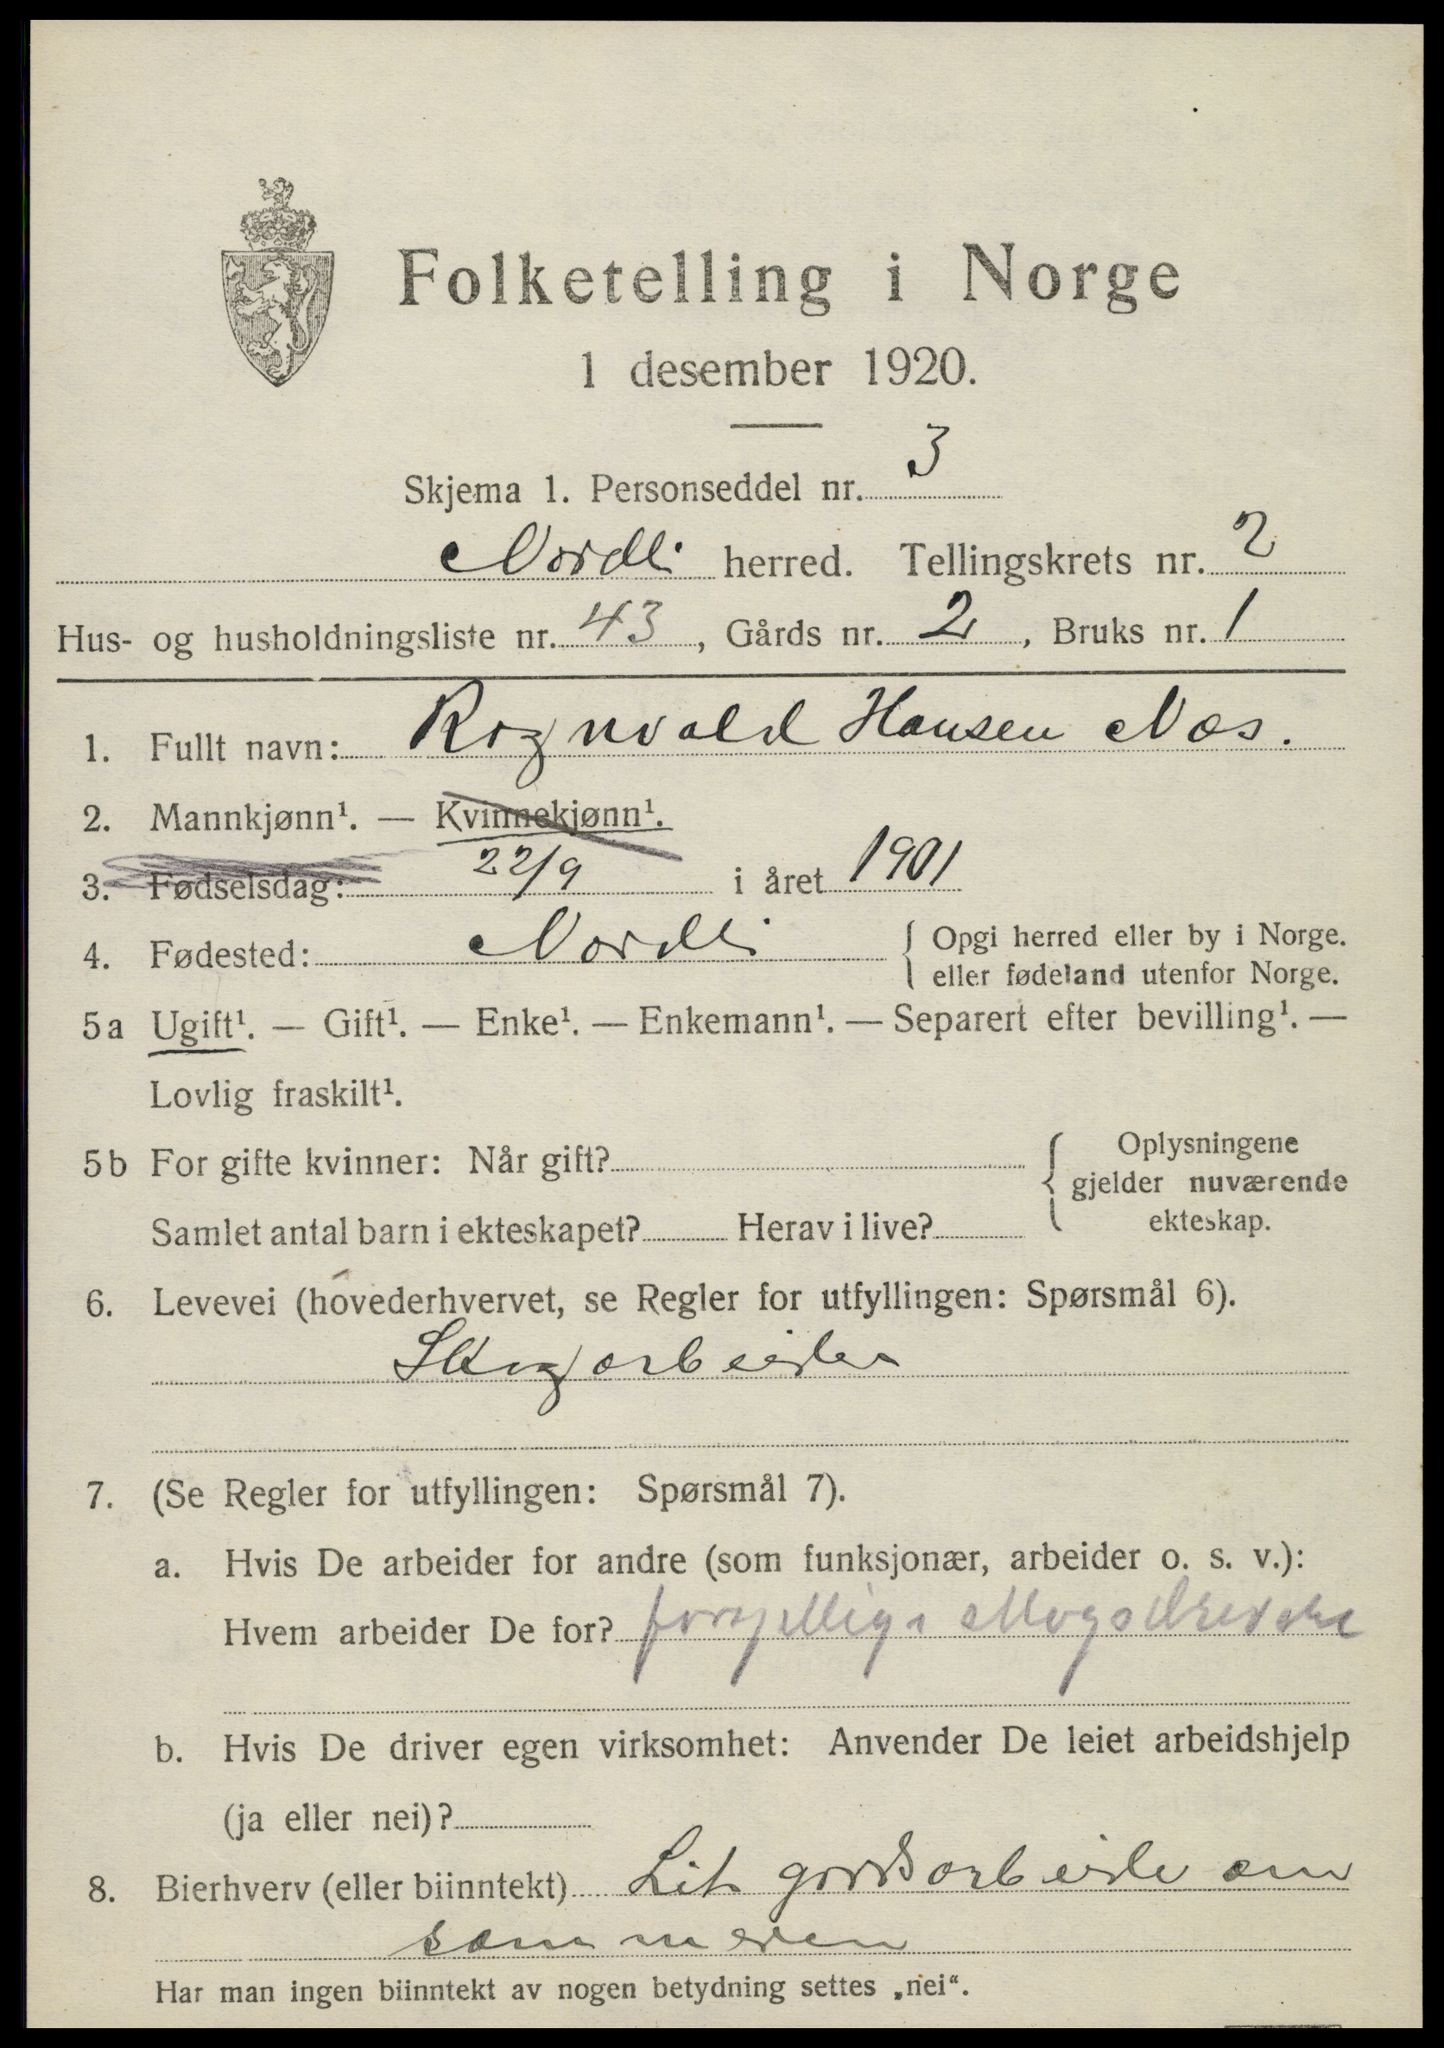 Folketelling i Norge
1 desember 1920.
Skjema 1. Personseddel nr. 3
Nordli herred. Tellingskrets nr. 2
Hus- og husholdningsliste nr. 43, Gårds nr. 2, Bruks nr. 1
1. Fullt navn: Rognvald Hansen Næs.
2. Mannkjønn¹. — Kvinnekjønn¹.
3. Fødselsdag: 22/9 i året 1901
4. Fødested: Nordli { Opgi herred eller by i Norge.
eller fødeland utenfor Norge.
5a Ugift¹. — Gift¹. — Enke¹. — Enkemann¹. — Separert efter bevilling¹. —
Lovlig fraskilt¹.
5b For gifte kvinner: Når gift? { Oplysningene
gjelder nuværende
ekteskap.
Samlet antal barn i ekteskapet? Herav i live?
6. Levevei (hovederhvervet, se Regler for utfyllingen: Spørsmål 6).
Skogarbeider
7. (Se Regler for utfyllingen: Spørsmål 7).
a. Hvis De arbeider for andre (som funksjonær, arbeider o. s. v.):
Hvem arbeider De for?
b. Hvis De driver egen virksomhet: Anvender De leiet arbeidshjelp
(ja eller nei)?
8. Bierhverv (eller biinntekt) Lit gårdsarbeide om
sommeren
Har man ingen biinntekt av nogen betydning settes „nei“.